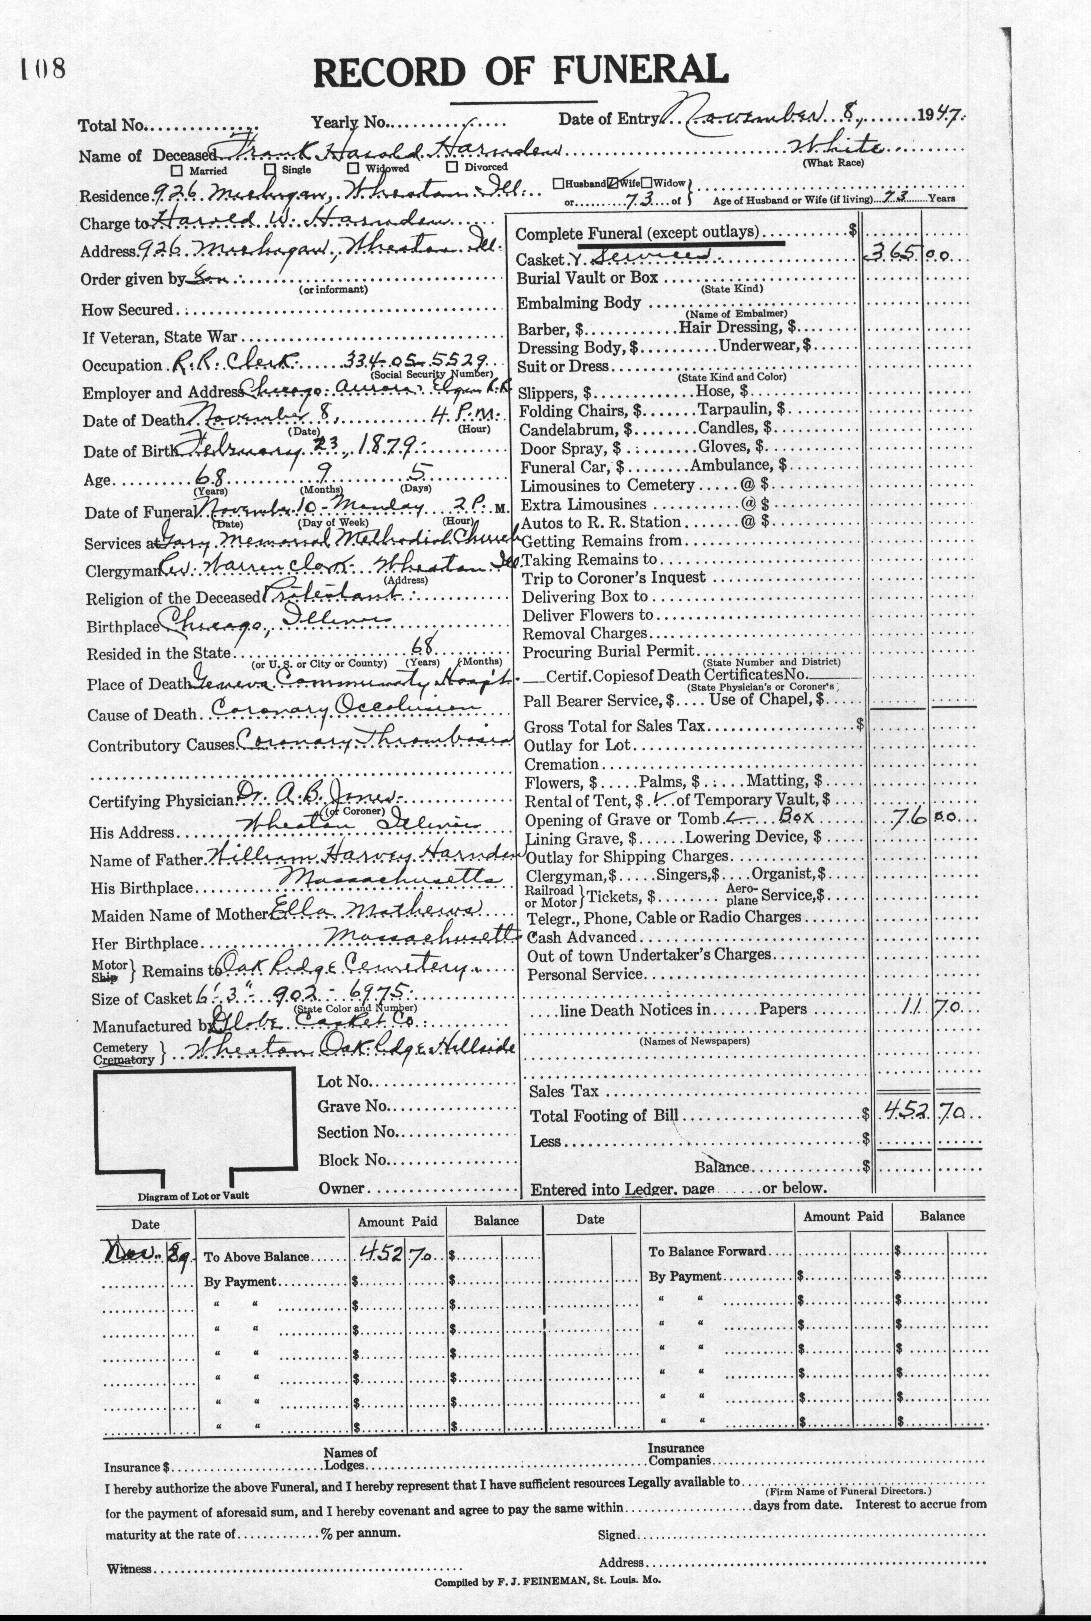 108
RECORD OF FUNERAL
Total No. Yearly No. Date of Entry November 8, 1947.
Name of Deceased Frank Harold Harnden White
(What Race)
Married Single Widowed Divorced
Residence 926 Michigan, Wheaton Ill. Husband Wife Widow or 73 of Age of Husband or Wife (if living) 73 Years
Charge to Harold W. Harnden
Address 926 Michigan, Wheaton Ill.
Order given by Son
(or informant)
How Secured
If Veteran, State War
Occupation R.R. Clerk 334-05-5529
(Social Security Number)
Employer and Address Chicago Aurora Elgin R.R.
Date of Death November 8, 4 P.M.
(Date) (Hour)
Date of Birth February 23, 1879
Age 68 9 5
(Years) (Months) (Days)
Date of Funeral November 10 - Monday 2 P. M.
(Date) (Day of Week) (Hour)
Services at Gary Memorial Methodist Church
Clergyman Rev. Warren Clark Wheaton Ill.
(Address)
Religion of the Deceased Protestant
Birthplace Chicago, Illinois
Resided in the State 68
(or U. S. or City or County) (Years) (Months)
Place of Death Geneva Community Hospt.
Cause of Death Coronary Occlusion
Contributory Causes Coronary Thrombosis
Certifying Physician Dr. A.B. Jones
(or Coroner)
His Address Wheaton Illinois
Name of Father William Harvey Harnden
His Birthplace Massachusetts
Maiden Name of Mother Ella Mathews
Her Birthplace Massachusetts
Motor Ship } Remains to Oak Ridge Cemetery
Size of Casket 6' 3" 902 - 6975
(State Color and Number)
Manufactured by Globe Casket Co.
Cemetery Crematory } Wheaton Oak Ridge Hillside
Lot No.
Grave No.
Section No.
Block No.
Owner
Diagram of Lot or Vault
Complete Funeral (except outlays) $
Casket & Services 365 00
Burial Vault or Box
(State Kind)
Embalming Body
(Name of Embalmer)
Barber, $ Hair Dressing, $
Dressing Body, $ Underwear, $
Suit or Dress
(State Kind and Color)
Slippers, $ Hose, $
Folding Chairs, $ Tarpaulin, $
Candelabrum, $ Candles, $
Door Spray, $ Gloves, $
Funeral Car, $ Ambulance, $
Limousines to Cemetery @ $
Extra Limousines @ $
Autos to R. R. Station @ $
Getting Remains from
Taking Remains to
Trip to Coroner's Inquest
Delivering Box to
Deliver Flowers to
Removal Charges
Procuring Burial Permit
(State Number and District)
Certif. Copies of Death Certificates No.
(State Physician's or Coroner's)
Pall Bearer Service, $ Use of Chapel, $
Gross Total for Sales Tax $
Outlay for Lot
Cremation
Flowers, $ Palms, $ Matting, $
Rental of Tent, $ ✓ of Temporary Vault, $
Opening of Grave or Tomb ✓ Box 76 00
Lining Grave, $ Lowering Device, $
Outlay for Shipping Charges
Clergyman, $ Singers, $ Organist, $
Railroad or Motor } Tickets, $ Aeroplane Service, $
Telegr., Phone, Cable or Radio Charges
Cash Advanced
Out of town Undertaker's Charges
Personal Service
line Death Notices in Papers 11 70
(Names of Newspapers)
Sales Tax
Total Footing of Bill $ 452 70
Less $
Balance $
Entered into Ledger, page or below.
Date Amount Paid Balance Date Amount Paid Balance
Nov. 29 To Above Balance 452 70 $ To Balance Forward $
By Payment $ $ By Payment $ $
" " $ $ " " $ $
" " $ $ " " $ $
" " $ $ " " $ $
" " $ $ " " $ $
" " $ $ " " $ $
" " $ $ " " $ $
Insurance $ Names of Lodges Insurance Companies
I hereby authorize the above Funeral, and I hereby represent that I have sufficient resources Legally available to
(Firm Name of Funeral Directors.)
for the payment of aforesaid sum, and I hereby covenant and agree to pay the same within days from date. Interest to accrue from
maturity at the rate of % per annum. Signed
Witness Address
Compiled by F. J. FEINEMAN, St. Louis. Mo.